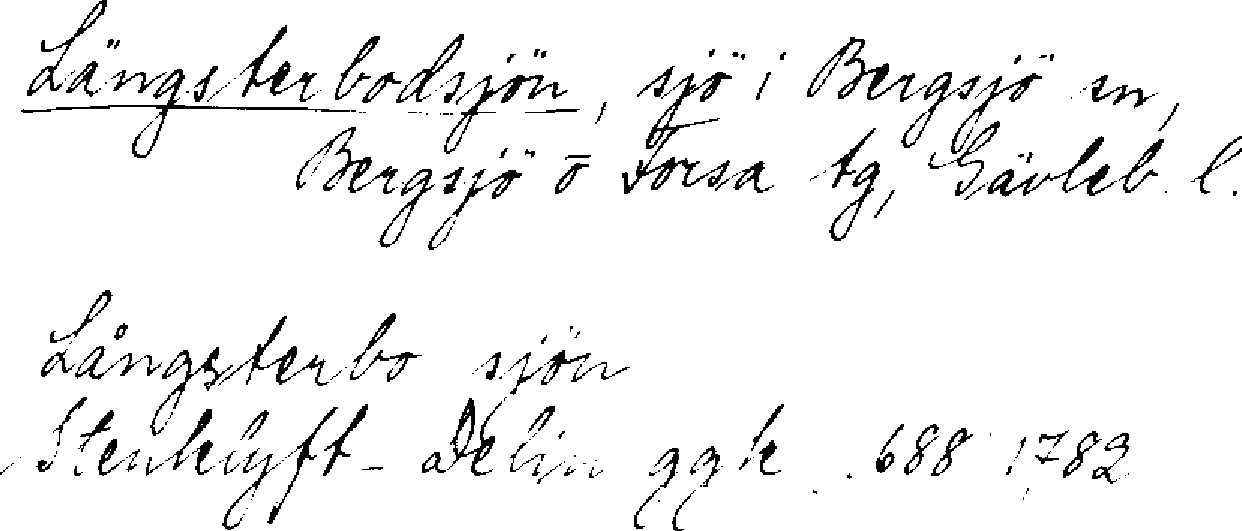 Längsterbodsjön, sjö i Bergsjö sn,
Bergsjö o Forsa tg, Gävleb. l.
Långsterbo sjön
Stenklyft- Delin ggk 688 1782